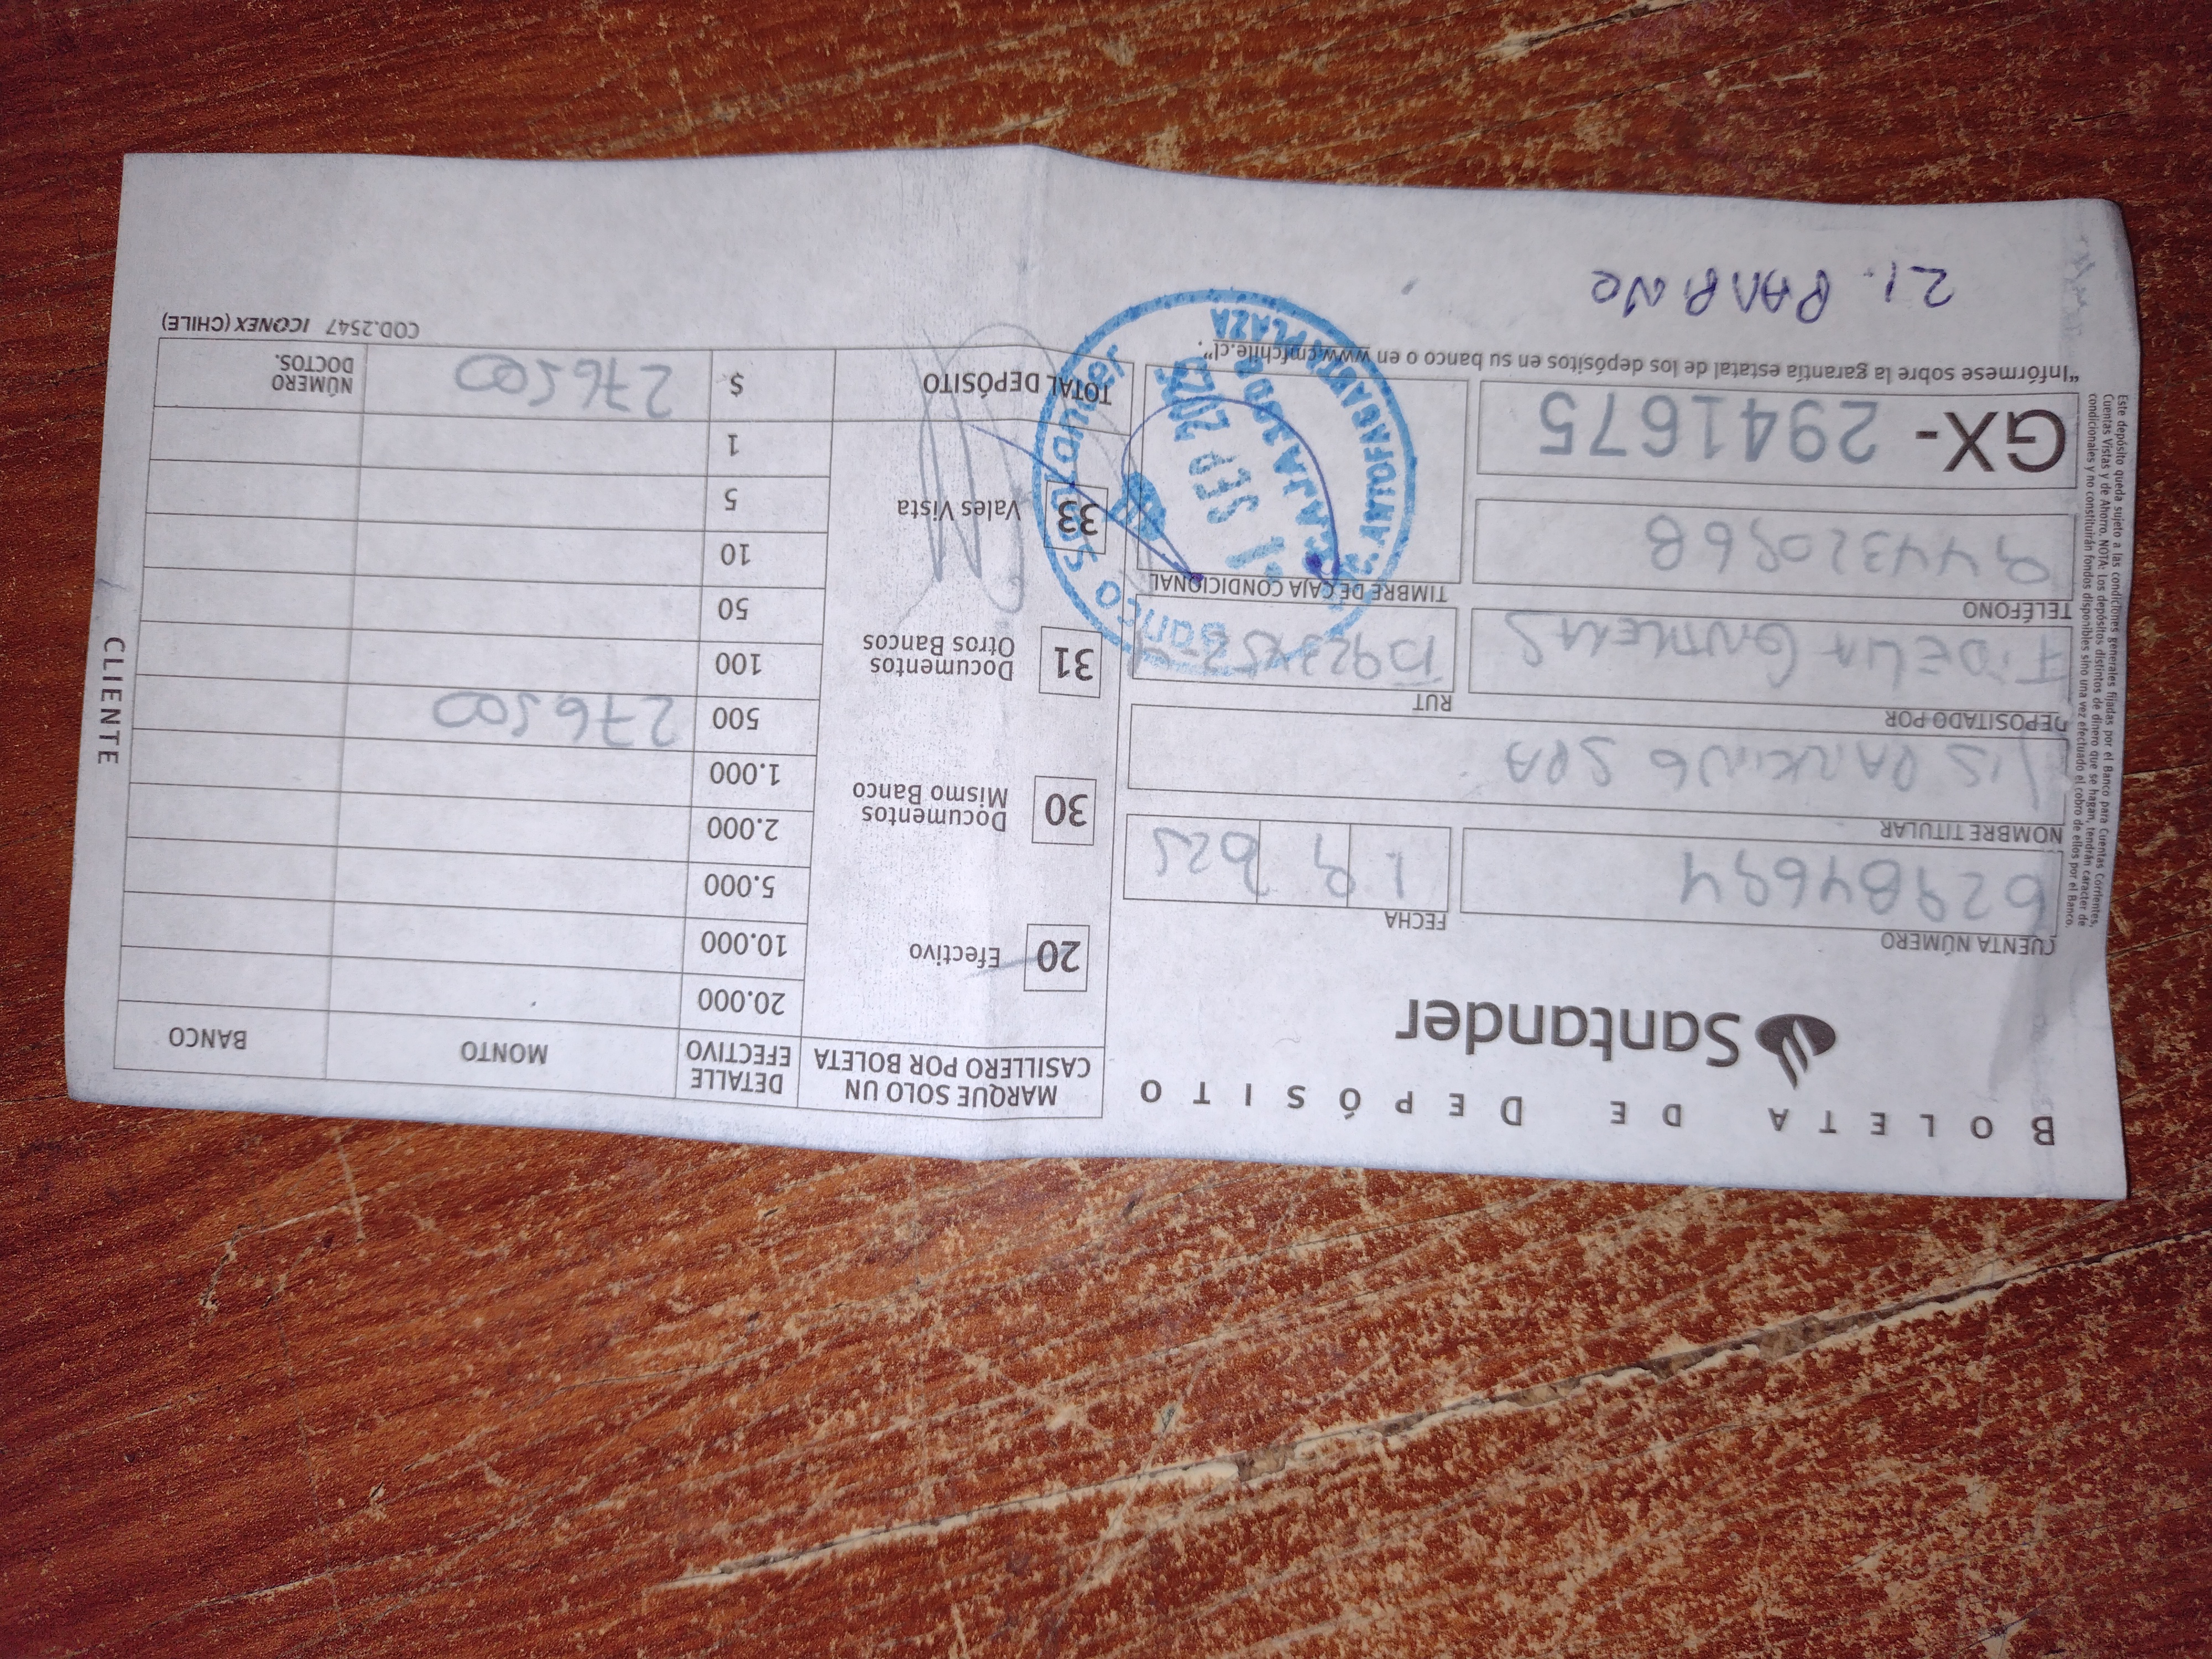 BOLETA DE DEPÓSITO
Santander
CUENTA NÚMERO
FECHA
62984694
1 9 025
NOMBRE TITULAR
PARKING SPA
DEPOSITADO POR
RUT
FIDELIA
TELÉFONO
TIMBRE DE CAJA CONDICIONAL
944320968
GX- 2941675
"Infórmese sobre la garantía estatal de los depósitos en su banco o en www.cmfchile.cl".
21.
Este depósito queda sujeto a las condiciones generales fijadas por el Banco para Cuentas Corrientes,
Cuentas Vistas y de Ahorro. NOTA: Los depósitos distintos de dinero que se hagan, tendrán caracter de
condicionales y no constituirán fondos disponibles sino una vez efectuado el cobro de ellos por el Banco.
Banco Santander
SUC. ANTOFAGASTA PLAZA
1 SEP 2025
CAJA
MARQUE SOLO UN
CASILLERO POR BOLETA
DETALLE
EFECTIVO
MONTO
BANCO
20 Efectivo
30 Documentos
Mismo Banco
31 Documentos
Otros Bancos
33 Vales Vista
20.000
10.000
5.000
2.000
1.000
500 276500
100
50
10
5
1
TOTAL DEPÓSITO $ 276500
NÚMERO
DOCTOS.
COD.2547 ICONEX (CHILE)
CLIENTE